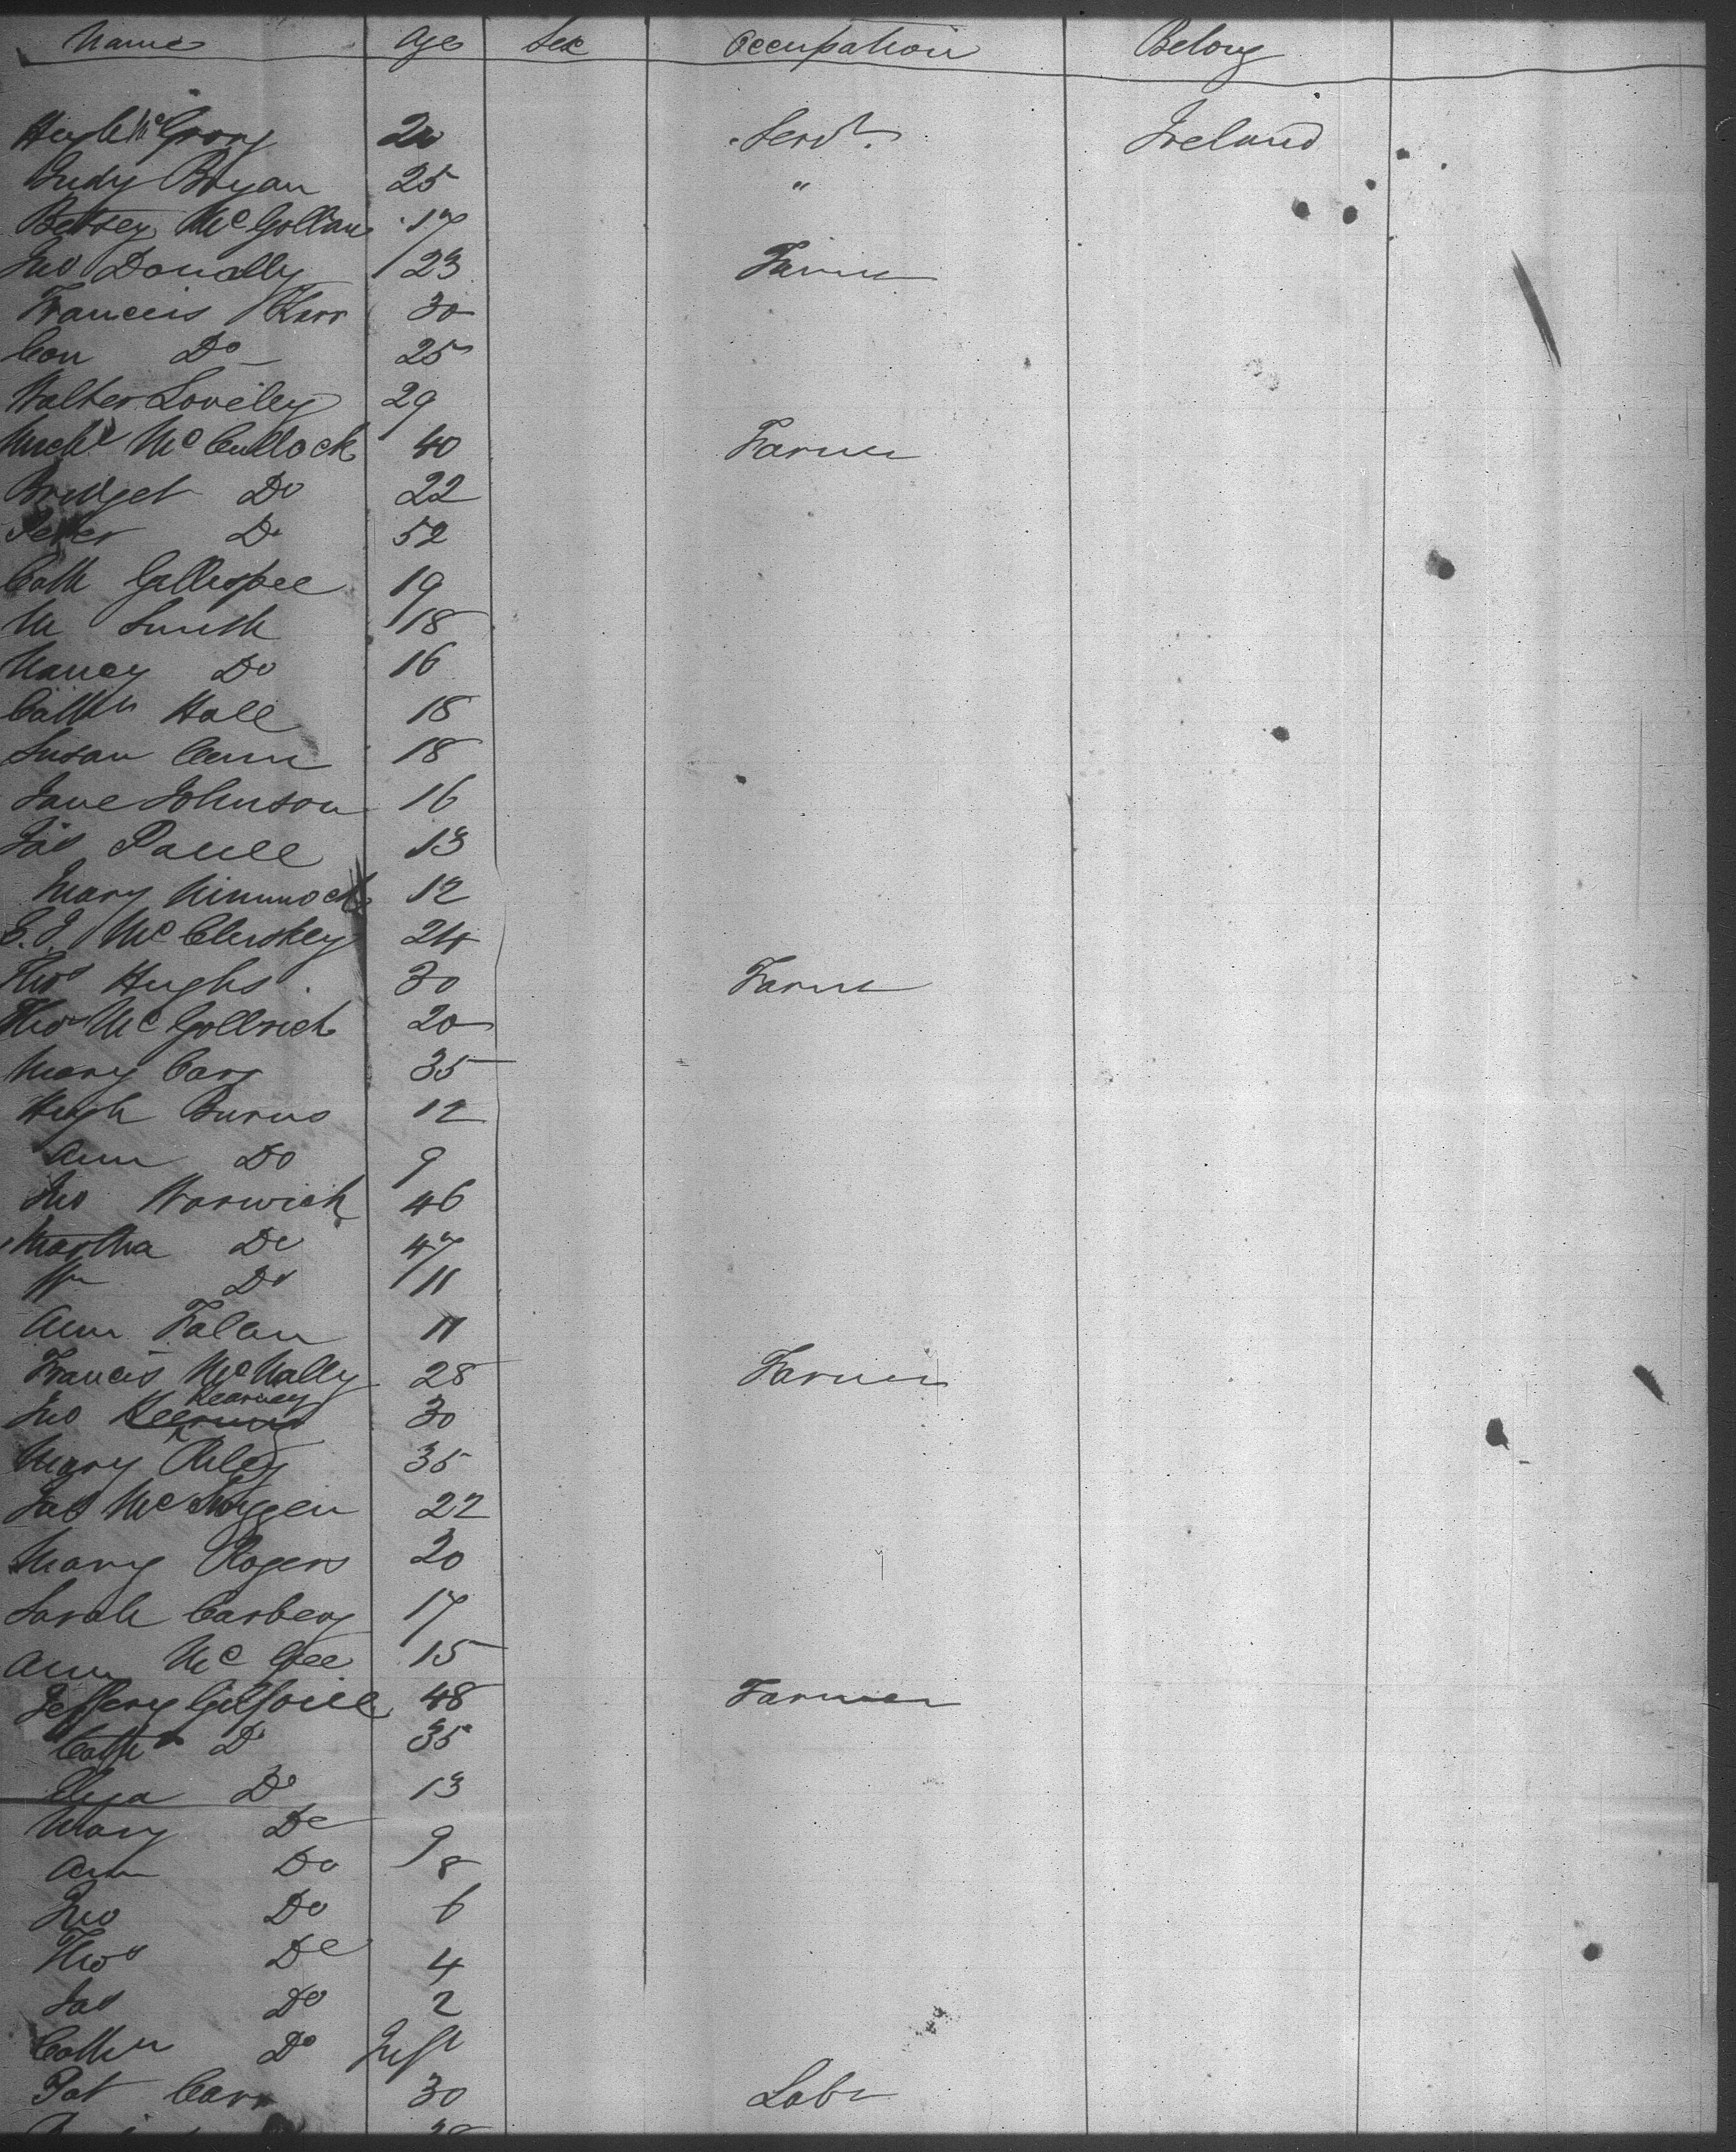 Name Age Sex Occupation Belong
Hugh McGrory 20 Servt. Ireland
Judy Bryan 25 "
Betsey McGollan 17
Jno Donally 23 Farmer
Francis Karr 30
Con Do 25
Walter Loveley 29
Michl McCullock 40 Farmer
Bridget Do 22
Peter Do 52
Cath Gillespee 19
M Smith 18
Nancy Do 16
Cathn Hall 18
Susan Cann 18
Jane Johnson 16
Jas Paull 13
Mary Nimmock 12
E. J. McClerskey 24
Thos Hughs 30 Farmer
Thos McGollrick 20
Mary Cary 35
Hugh Burns 12
Ann Do 9
Jno Warwick 46
Martha Do 47
Wm Do 11
Ann Falan 11
Francis McNally 28 Farmer
Jno Kearney 30
Mary Riley 35
Jas McGuggen 22
Mary Rogers 20
Sarah Carbery 17
Ann McGee 15
Jeffery Gilfoile 48 Farmer
Cathn Do 35
Eliza Do 13
Mary Do 9
Ann Do 8
Jno Do 6
Thos Do 4
Jas Do 2
Cathn Do Inft
Pat Carr 30 Labr